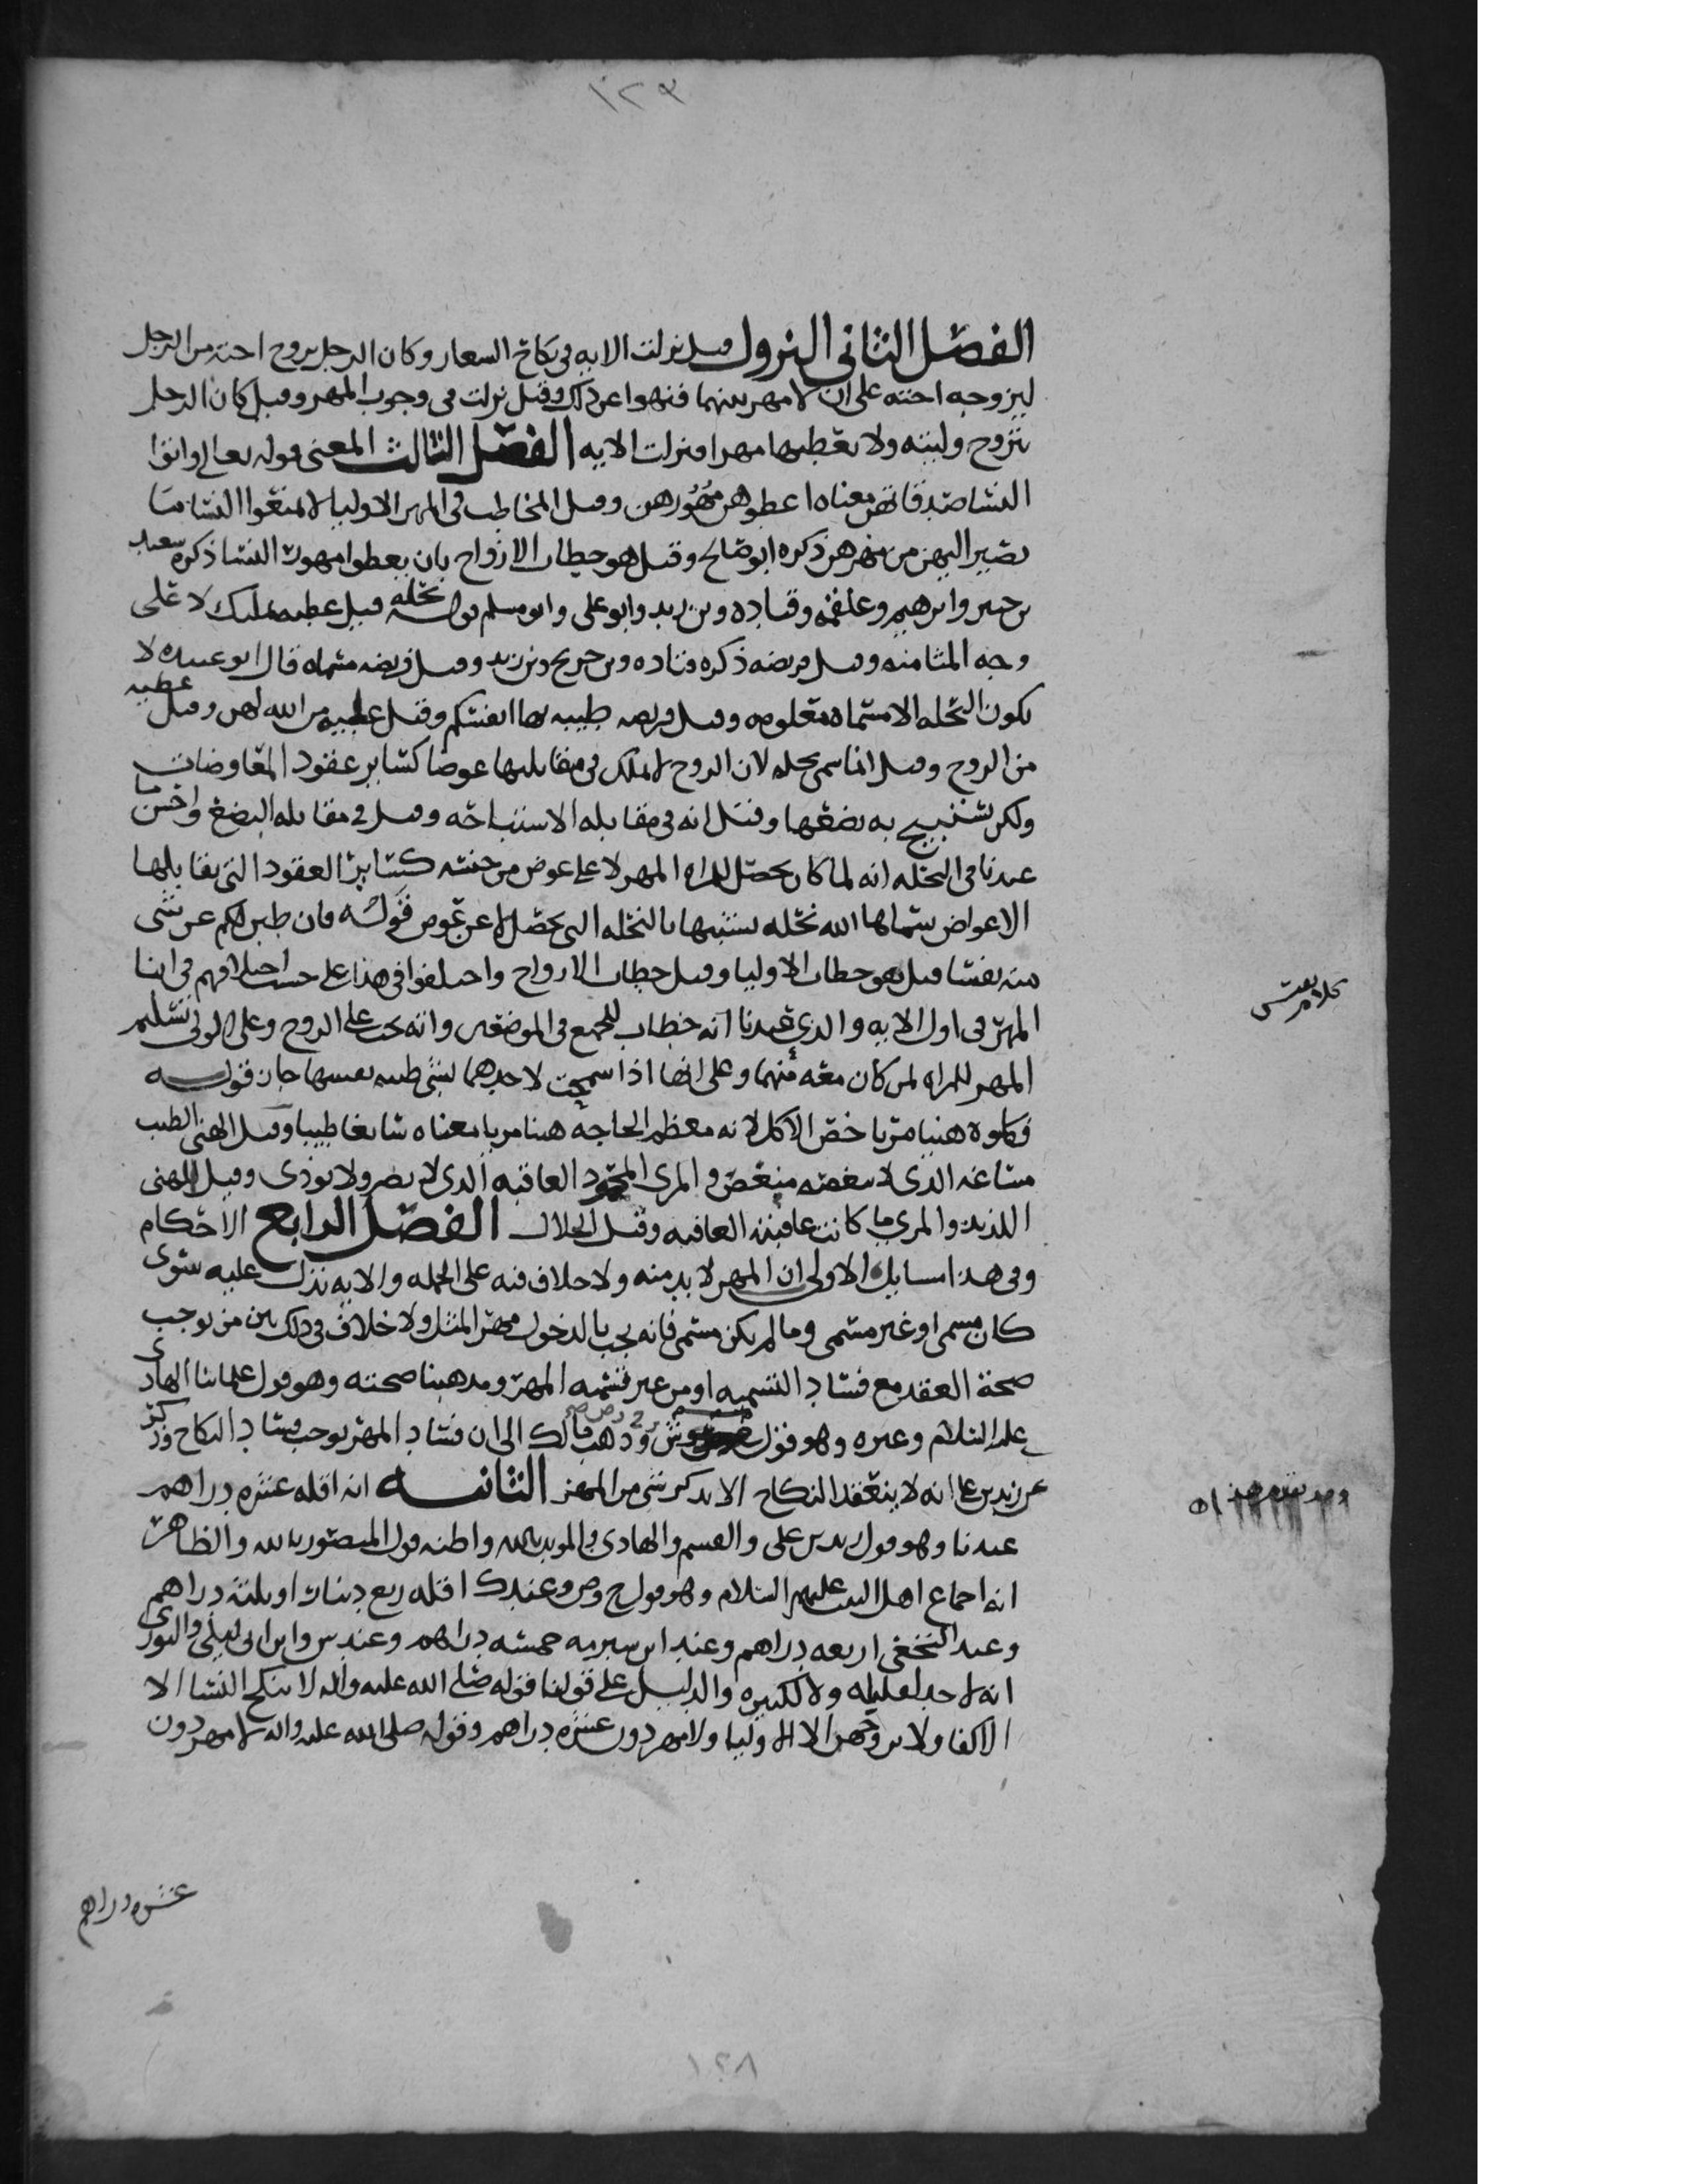 ١٢٣
الفصل الثاني النزول قيل نزلت الايه في نكاح الشغار وكان الرجل يزوج اخته من الرجل
ليزوجه اخته على ان لا مهر بينهما فنهوا عن ذلك وقيل نزلت في وجوب المهر وقيل كان الرجل
يتزوج وليته ولا يعطيها مهرا فنزلت الايه الفصل الثالث المعنى قوله تعالى واتوا
النسا صدقاتهن معناه اعطوهن مهورهن وقيل المخاطب في المهر الاوليا لا تمنعوا النسا ما
يصير اليهن من مهرهن ذكره ابو صالح وقيل هو خطاب الازواج بان يعطوا مهور النسا ذكره سعيد
بن جبير وابرهيم وعلقمه وقتاده وبن زيد وابو علي وابو مسلم قوله نحله قيل عطيه تمليك لا على
وجه المثامنه وقيل فريضه ذكره قتاده وبن جريج وبن زيد وقيل فريضه مسماه قال ابو عبيده لا
يكون النحله الا مسماه معلومه وقيل فريضه طيبه بها انفسكم وقيل عطيه من الله لهن وقيل عطيه
من الزوج وقيل انما سمي نحله لان الزوج لا يملك في مقابلها عوضا كساير عقود المعاوضات
ولكن يستبيح به بضعها وقيل انه في مقابله الاستباحه وقيل في مقابله البضع واحسن ما
عندنا في النحله انه لما كان يحصل للمراه المهر لا على عوض من جنسه كساير العقود التي يقابلها
الاعواض سماها الله نحله تشبيها بالنحله التي تحصل لا عن عوض قوله فان طبن لكم عن شي
منه نفسا قيل هو خطاب الاوليا وقيل خطاب الازواج واختلفوا في هذا على حسب اختلافهم في ايتا
المهر في اول الايه والذي عندنا انه خطاب للجميع في الموضعين وانه يجب على الزوج وعلى الولي تسليم
المهر للمراه لمن كان معه منهما وعلى انها اذا سمحت لاحدهما بشي طيبه نفسها جاز قوله
فكلوه هنيا مريا خص الاكل لانه معظم الحاجه هنيا مريا معناه سايغا طيبا وقيل الهني الطيب
مساغه الذي لا ينغصه منغص والمري المحمود العاقبه الذي لا يضر ولا يوذي وقيل الهني
اللذيذ والمري ما كانت عاقبته العافيه وقيل الحلال الفصل الرابع الاحكام
وفي هذا مسايل الاولى ان المهر لا بد منه ولا خلاف فيه على الجمله والايه تدل عليه سوى
كان مسمى او غير مسمى وما لم يكن مسمى فانه يجب بالدخول مهر المثل ولا خلاف في ذلك بين من يوجب
صحة العقد مع فساد التسميه او من غير تسميه المهر ومذهبنا صحته وهو قول علماينا الهادي
عليه السلام وغيره وهو قول وش وذهب مالك الى ان فساد المهر يوجب فساد النكاح وذكر
عن زيد بن علي انه لا ينعقد النكاح الا بذكر شي من المهر الثانيه انه اقله عشره دراهم
عندنا وهو قول زيد بن علي والقسم والهادي والمويد بالله واظنه قول المنصور بالله والظاهر
انه اجماع اهل البيت عليهم السلام وهو قول ح وص وعند ك اقله ربع دينار او ثلثه دراهم
وعند النخعي اربعه دراهم وعند ابن شبرمه خمسه دراهم وعند س وابن ابي ليلى والثوري
انه لا حد لقليله ولا لكثيره والدليل على قولنا قوله صلى الله عليه واله لا ينكح النسا الا
الاكفا ولا يزوجهن الا الاوليا ولا مهر دون عشره دراهم وقوله صلى الله عليه واله لا مهر دون
عشره دراهم
١٢٨